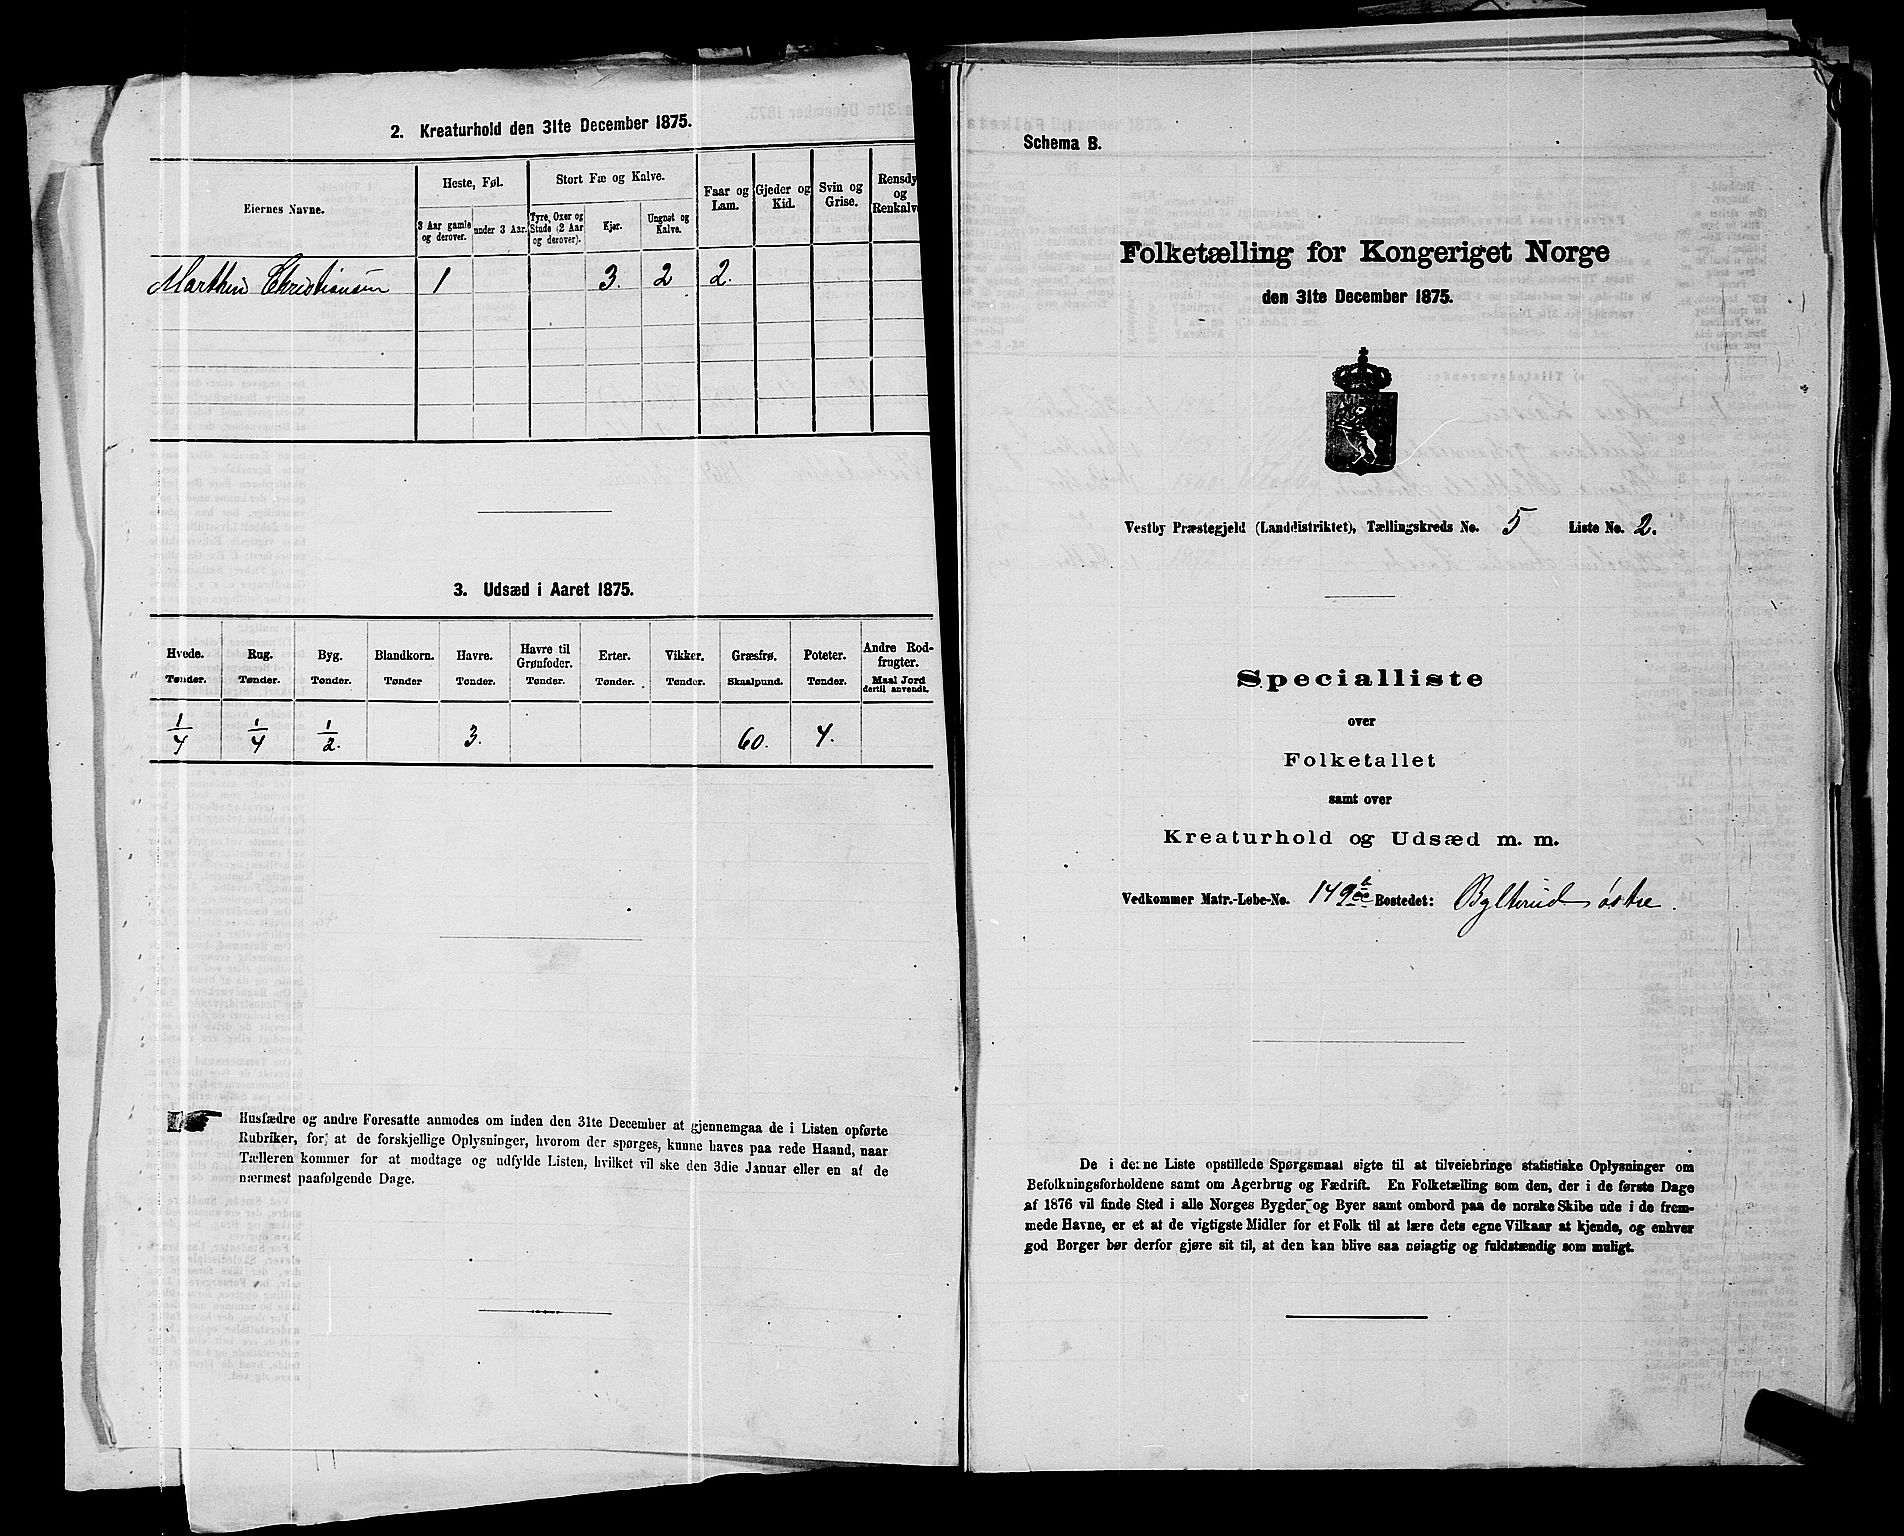 2. Kreaturhold den 31te December 1875.
Eiernes Navne.
Heste, Føl.
Stort Fæ og Kalve.
Faar og Lam.
Gjeder og Kid.
Svin og Grise.
Rensdy og Renkalv
3 Aar gamle og derover.
under 3 Aar.
Tyre, Oxer og Stude (2 Aar og derover).
Kjør.
Ungnøt og Kalve.
Marthin Christiansen 1 3. 2 2.
3. Udsæd i Aaret 1875.
Hvede. Rug. Byg. Blandkorn. Havre. Havre til Grønfoder. Erter. Vikker. Græsfrø. Poteter. Andre Rodfrugter.
Tønder. Tønder. Tønder. Tønder Tønder. Tønder. Tønder. Tønder. Skaalpund. Tønder. Maal Jord dertil anvendt.
1/4 1/4 1/2. 3. 60. 4.
Husfædre og andre Foresatte anmodes om inden den 31te December at gjennemgaa de i Listen opførte
Rubriker, for at de forskjellige Oplysninger, hvorom der spørges, kunne haves paa rede Haand, naar
Tælleren kommer for at modtage og udfylde Listen, hvilket vil ske den 3die Januar eller en af de
nærmest paafølgende Dage.
Schema B.
Folketælling for Kongeriget Norge
den 31te December 1875.
Vestby Præstegjeld (Landdistriktet), Tællingskreds No. 5 Liste No. 2.
Specialliste
over
Folketallet
samt over
Kreaturhold og Udsæd m. m.
Vedkommer Matr.-Løbe-No. 149 Bostedet: Bylterud østre.
De i denne Liste opstillede Spørgsmaal sigte til at tilveiebringe statistiske Oplysninger om
Befolkningsforholdene samt om Agerbrug og Fædrift. En Folketælling som den, der i de første Dage
af 1876 vil finde Sted i alle Norges Bygder og Byer samt ombord paa de norske Skibe ude i de frem-
mede Havne, er et at de vigtigste Midler for et Folk til at lære dets egne Vilkaar at kjende, og enhver
god Borger bør derfor gjøre sit til, at den kan blive saa nøiagtig og fuldstændig som muligt.